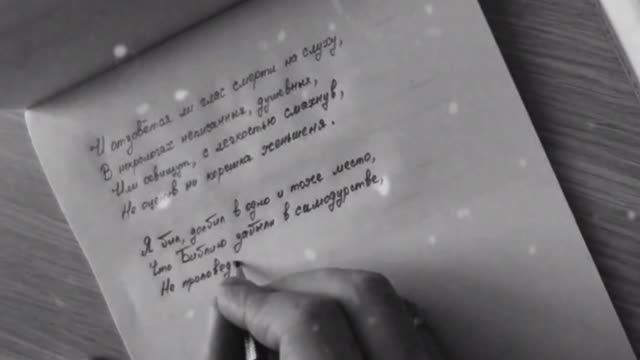 И отзовётся ли глас смерти на слуху,
В некрологах неписанных, душевных,
Или освищут, с лёгкостью смахнув,
Не оценив ни корешка женьшеня.
Я был, долбил в одно и тоже место,
Что Библию забыли в самодурстве,
Не проповед